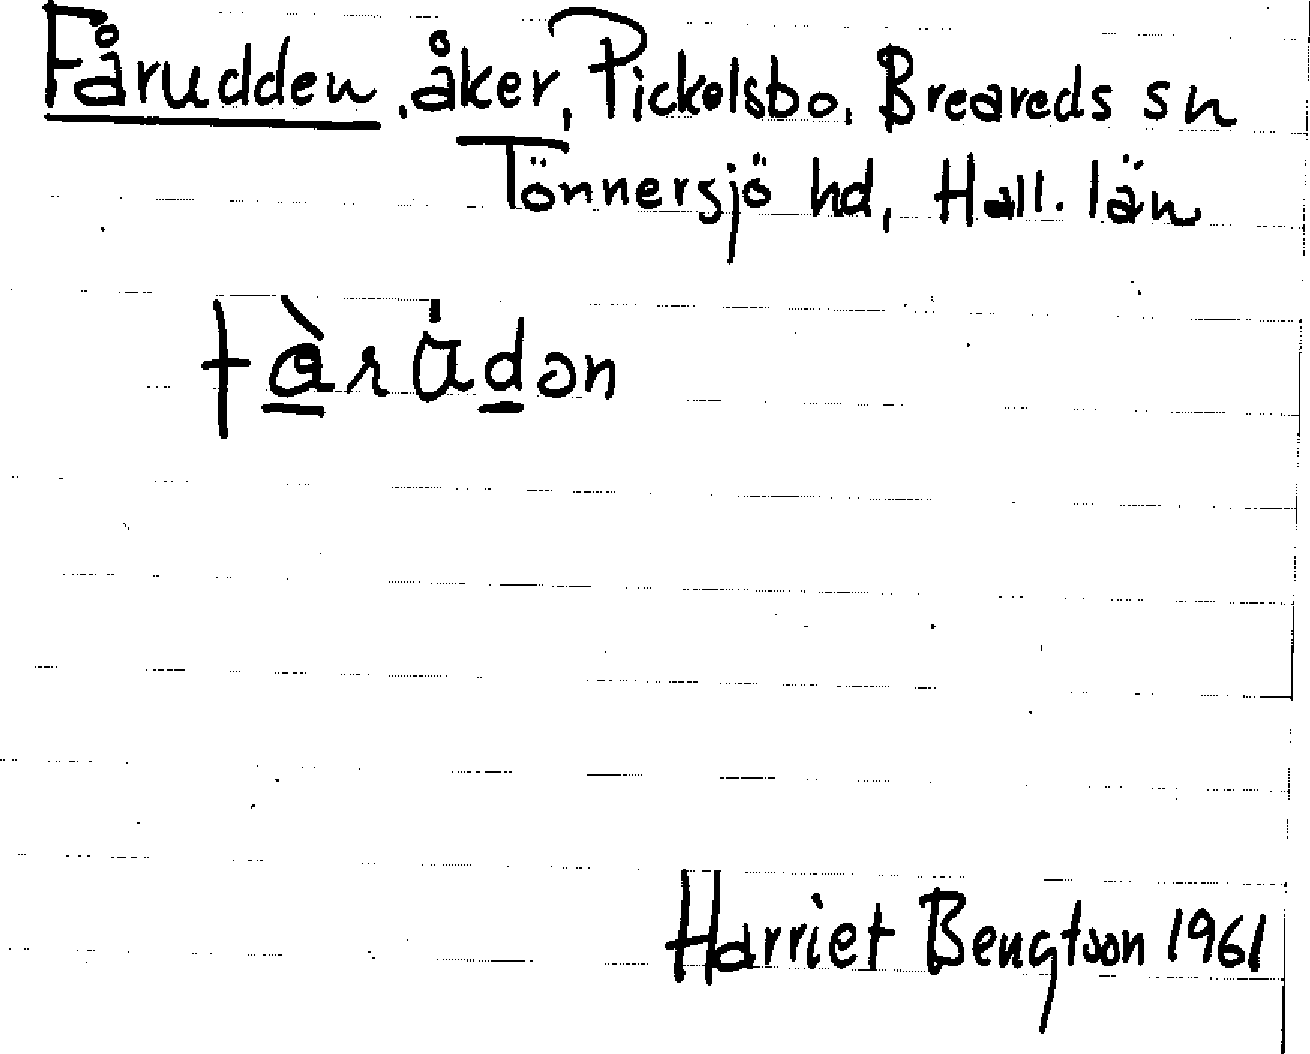 Fårudden, åker, Pickelsbo, Breareds sn
Tönnersjö hd, Hall. län
Harriet Bengtson 1961